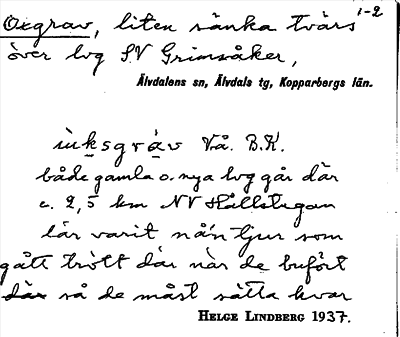 1-2
Oxgrav, liten sänka tvärs
över lvg S.V Grimsåker,
Älvdalens sn, Älvdals tg, Kopparbergs län.
ùksgràv Vå. B.K.
både gamla o. nya lvg går där
c. 2,5 km NV Hållstugan
lär varit nå'n tjur som
gått trött där när de bufört
så de måst sätta kvar
HELGE LINDBERG 1937.